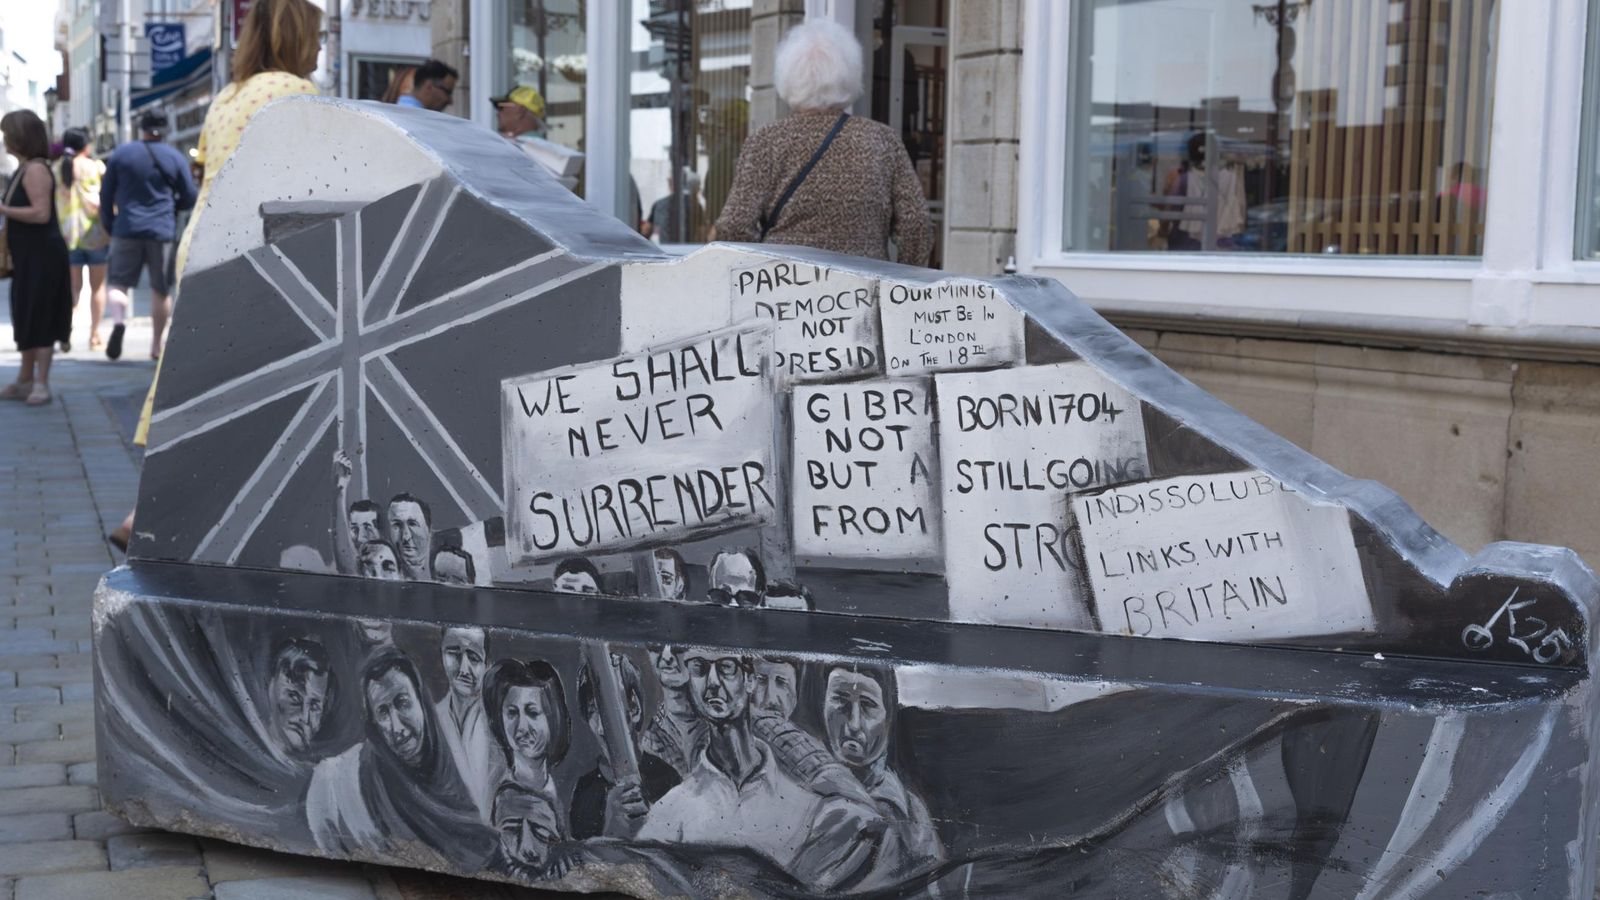 WE SHALL
NEVER
SURRENDER
DEMOCR
NOT
PRESID
OUR MINIST
MUST BE IN
LONDON
ON THE 18TH
GIBR
NOT
BUT A
FROM
BORN 1704
STILL GOING
STRO
INDISSOLUBL
LINKS WITH
BRITAIN
K25